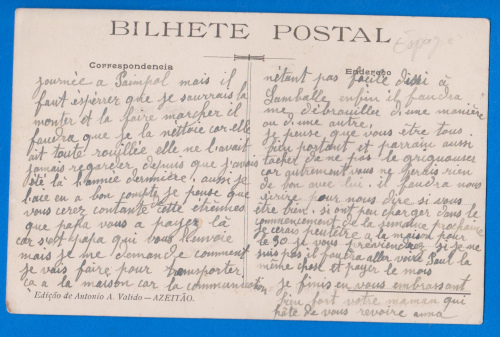 BILHETE POSTAL
Correspondencia
journée a Paimpol mais il
faut espérrer que je saurrais la
monter et la faire marcher il
faudra que je la nettoie car elle
ait toute rouillée elle ne l'avait
jamais regarder, depuis que j'avais
été là l'année dernière. aussi je
l'ai eu a bon compte je pense que
vous cerez contante cette étrennes
que papa vous a payer là
car s'est papa qui vous l'envoie
mais je me demande comment
je vais faire pour transporter
ça a la maison car la communication
Edição de Antonio A. Valido — AZEITÃO.
Endereço
n'étant pas facile d'ici à
Lamballe enfin il faudra
me débrouiller d'une manière
ou d'une autre.
je pense que vous ête tous
bien portant et parrain aussi
tacher de ne pas le
car autrement vous ne ferais rien
de bon avec lui. il faudra nous
écrire pour nous dire si vous
ête bien. si ont peu charger dans le
commencement de la semaine prochaine
je cerais peutêtre a la maison pour
le 30. je vous préviendrez si je ne
suis pas il faudra aller voir Paul la
même chose et payer le mois
je finis en vous embrassant
bien fort votre maman qui
hâte de vous revoire anna